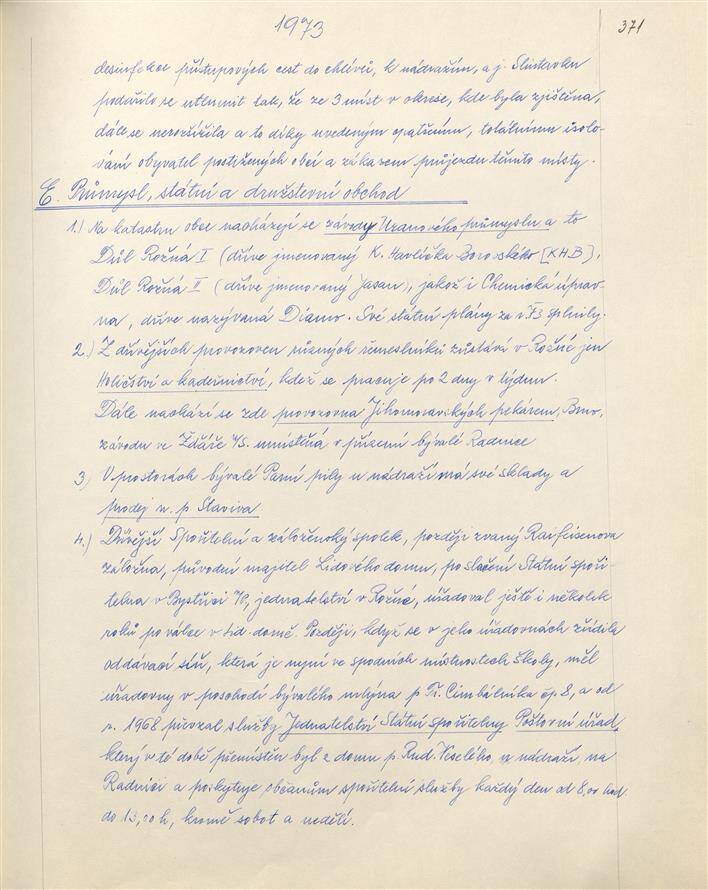 1973
371
desinfekce přístupových cest do chlévů, k nádražím, a j. Slintavku
podařilo se utlumit tak, že ze 3 míst v okrese, kde byla zjištěna,
dále se nerozšířila a to díky uvedeným opatřením, totálnímu isolo-
vání obyvatel postižených obcí a zákazem průjezdu těmito místy.
E. Průmysl, státní a družstevní obchod
1.) Na katastru obce nacházejí se závody Uranového průmyslu a to
Důl Rožná I (dříve jmenovaný K. Havlíčka Borovského [KHB],
Důl Rožná II (dříve jmenovaný Jasan), jakož i Chemická úprav-
na, dříve nazývaná Diamo. Své státní plány za r. 73 splnily.
2.) Z dřívějších provozoven různých řemeslníků zůstává v Rožné jen
Holičství a kadeřnictví, kdež se pracuje po 2 dny v týdnu.
Dále nachází se zde provozovna Jihomoravských pekáren, Brno,
závodu ve Žďáře n/S. umístěná v přízemí bývalé Radnice
3) V prostorách bývalé Parní pily u nádraží má své sklady a
prodej n. p. Staviva
4.) Dřívější Spořitelní a záloženský spolek, později zvaný Raifeisenova
záložna, původní majitel Lidového domu, po sloučení Státní spoři-
telna v Bystřici n/P., jednatelství v Rožné, úřadoval ještě i několik
roků po válce v Lid. domě. Později, když se v jeho úřadovnách zřídila
oddávací síň, která je nyní ve spodních místnostech školy, měl
úřadovny v poschodí bývalého mlýna p. Fr. Cimbálníka čp 8, a od
r. 1968 převzal služby Jednatelství Státní spořitelny Poštovní úřad,
který v té době přemístěn byl z domu p. Rud. Veselého, u nádraží, na
Radnici a poskytuje občanům spořitelní služby každý den od 8,00 hod.
do 13,00 h, kromě sobot a nedělí.